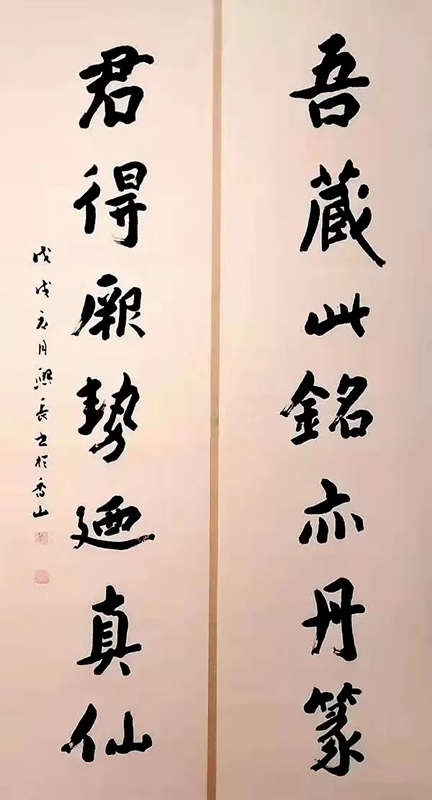 吾藏此銘亦丹篆
君得厥勢廼真仙
戊戌 月興長書於香山